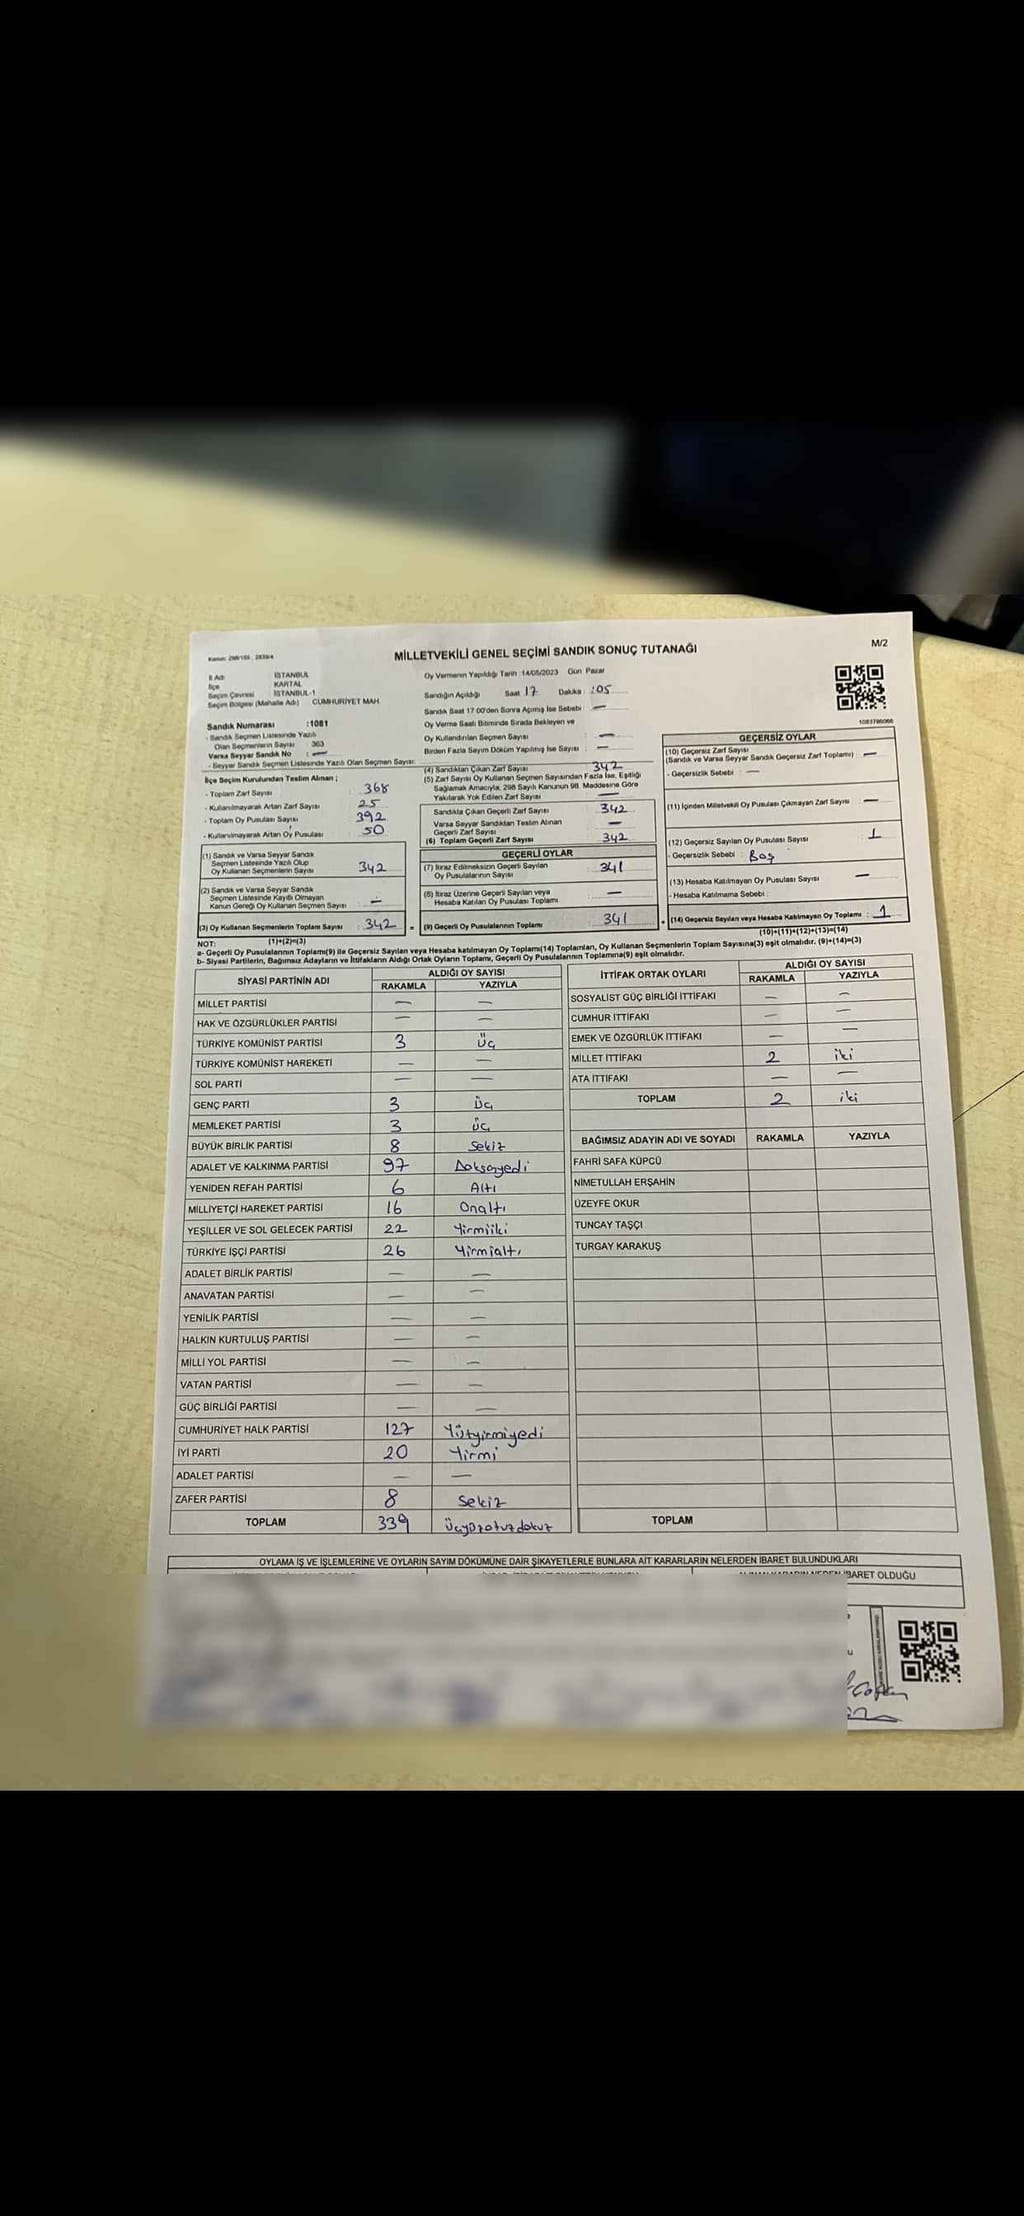 Kanun: 298/105 ; 2839/4
MİLLETVEKİLİ GENEL SEÇİMİ SANDIK SONUÇ TUTANAĞI
M/2
İl Adı İSTANBUL
İlçe KARTAL
Seçim Çevresi İSTANBUL-1
Seçim Bölgesi (Mahalle Adı) CUMHURİYET MAH.
Oy Vermenin Yapıldığı Tarih :14/05/2023 Gün Pazar
Sandığın Açıldığı Saat 17 Dakika :05
Sandık Saat 17:00'den Sonra Açılmış İse Sebebi : —
Oy Verme Saati Bitiminde Sırada Bekleyen ve
Oy Kullandırılan Seçmen Sayısı : —
Birden Fazla Sayım Döküm Yapılmış İse Sayısı : —
Sandık Numarası :1081
- Sandık Seçmen Listesinde Yazılı
Olan Seçmenlerin Sayısı : 363
Varsa Seyyar Sandık No : —
- Seyyar Sandık Seçmen Listesinde Yazılı Olan Seçmen Sayısı:
İlçe Seçim Kurulundan Teslim Alınan ;
- Toplam Zarf Sayısı : 368
- Kullanılmayarak Artan Zarf Sayısı : 25
- Toplam Oy Pusulası Sayısı : 392
- Kullanılmayarak Artan Oy Pusulası : 50
(1) Sandık ve Varsa Seyyar Sandık
Seçmen Listesinde Yazılı Olup
Oy Kullanan Seçmenlerin Sayısı : 342
(2) Sandık ve Varsa Seyyar Sandık
Seçmen Listesinde Kayıtlı Olmayan
Kanun Gereği Oy Kullanan Seçmen Sayısı : —
(3) Oy Kullanan Seçmenlerin Toplam Sayısı : 342
(1)+(2)=(3)
(4) Sandıktan Çıkan Zarf Sayısı : 342
(5) Zarf Sayısı Oy Kullanan Seçmen Sayısından Fazla İse, Eşitliği
Sağlamak Amacıyla, 298 Sayılı Kanunun 98. Maddesine Göre
Yakılarak Yok Edilen Zarf Sayısı : —
Sandıkta Çıkan Geçerli Zarf Sayısı : 342
Varsa Seyyar Sandıktan Teslim Alınan
Geçerli Zarf Sayısı : —
(6) Toplam Geçerli Zarf Sayısı : 342
GEÇERLİ OYLAR
(7) İtiraz Edilmeksizin Geçerli Sayılan
Oy Pusulalarının Sayısı : 341
(8) İtiraz Üzerine Geçerli Sayılan veya
Hesaba Katılan Oy Pusulası Toplamı : —
= (9) Geçerli Oy Pusulalarının Toplamı : 341
1083786066
GEÇERSİZ OYLAR
(10) Geçersiz Zarf Sayısı
(Sandık ve Varsa Seyyar Sandık Geçersiz Zarf Toplamı) : —
- Geçersizlik Sebebi : —
(11) İçinden Milletvekili Oy Pusulası Çıkmayan Zarf Sayısı : —
(12) Geçersiz Sayılan Oy Pusulası Sayısı : 1
- Geçersizlik Sebebi : Boş
(13) Hesaba Katılmayan Oy Pusulası Sayısı : —
- Hesaba Katılmama Sebebi :
+ (14) Geçersiz Sayılan veya Hesaba Katılmayan Oy Toplamı : 1
(10)+(11)+(12)+(13)=(14)
NOT:
a- Geçerli Oy Pusulalarının Toplamı(9) ile Geçersiz Sayılan veya Hesaba katılmayan Oy Toplamı(14) Toplamları, Oy Kullanan Seçmenlerin Toplam Sayısına(3) eşit olmalıdır. (9)+(14)=(3)
b- Siyasi Partilerin, Bağımsız Adayların ve İttifakların Aldığı Ortak Oyların Toplamı, Geçerli Oy Pusulalarının Toplamına(9) eşit olmalıdır.
SİYASİ PARTİNİN ADI ALDIĞI OY SAYISI
RAKAMLA YAZIYLA
MİLLET PARTİSİ — —
HAK VE ÖZGÜRLÜKLER PARTİSİ — —
TÜRKİYE KOMÜNİST PARTİSİ 3 Üç
TÜRKİYE KOMÜNİST HAREKETİ — —
SOL PARTİ — —
GENÇ PARTİ 3 Üç
MEMLEKET PARTİSİ 3 Üç
BÜYÜK BİRLİK PARTİSİ 8 Sekiz
ADALET VE KALKINMA PARTİSİ 97 Doksanyedi
YENİDEN REFAH PARTİSİ 6 Altı
MİLLİYETÇİ HAREKET PARTİSİ 16 Onaltı
YEŞİLLER VE SOL GELECEK PARTİSİ 22 Yirmiiki
TÜRKİYE İŞÇİ PARTİSİ 26 Yirmialtı
ADALET BİRLİK PARTİSİ — —
ANAVATAN PARTİSİ — —
YENİLİK PARTİSİ — —
HALKIN KURTULUŞ PARTİSİ — —
MİLLİ YOL PARTİSİ — —
VATAN PARTİSİ — —
GÜÇ BİRLİĞİ PARTİSİ — —
CUMHURİYET HALK PARTİSİ 127 Yüzyirmiyedi
İYİ PARTİ 20 Yirmi
ADALET PARTİSİ — —
ZAFER PARTİSİ 8 Sekiz
TOPLAM 339 Üçyüzotuzdokuz
İTTİFAK ORTAK OYLARI ALDIĞI OY SAYISI
RAKAMLA YAZIYLA
SOSYALİST GÜÇ BİRLİĞİ İTTİFAKI — —
CUMHUR İTTİFAKI — —
EMEK VE ÖZGÜRLÜK İTTİFAKI — —
MİLLET İTTİFAKI 2 iki
ATA İTTİFAKI — —
TOPLAM 2 iki
BAĞIMSIZ ADAYIN ADI VE SOYADI RAKAMLA YAZIYLA
FAHRİ SAFA KÜPCÜ
NİMETULLAH ERŞAHİN
ÜZEYFE OKUR
TUNCAY TAŞÇI
TURGAY KARAKUŞ
TOPLAM
OYLAMA İŞ VE İŞLEMLERİNE VE OYLARIN SAYIM DÖKÜMÜNE DAİR ŞİKAYETLERLE BUNLARA AİT KARARLARIN NELERDEN İBARET BULUNDUKLARI
İBARET OLDUĞU